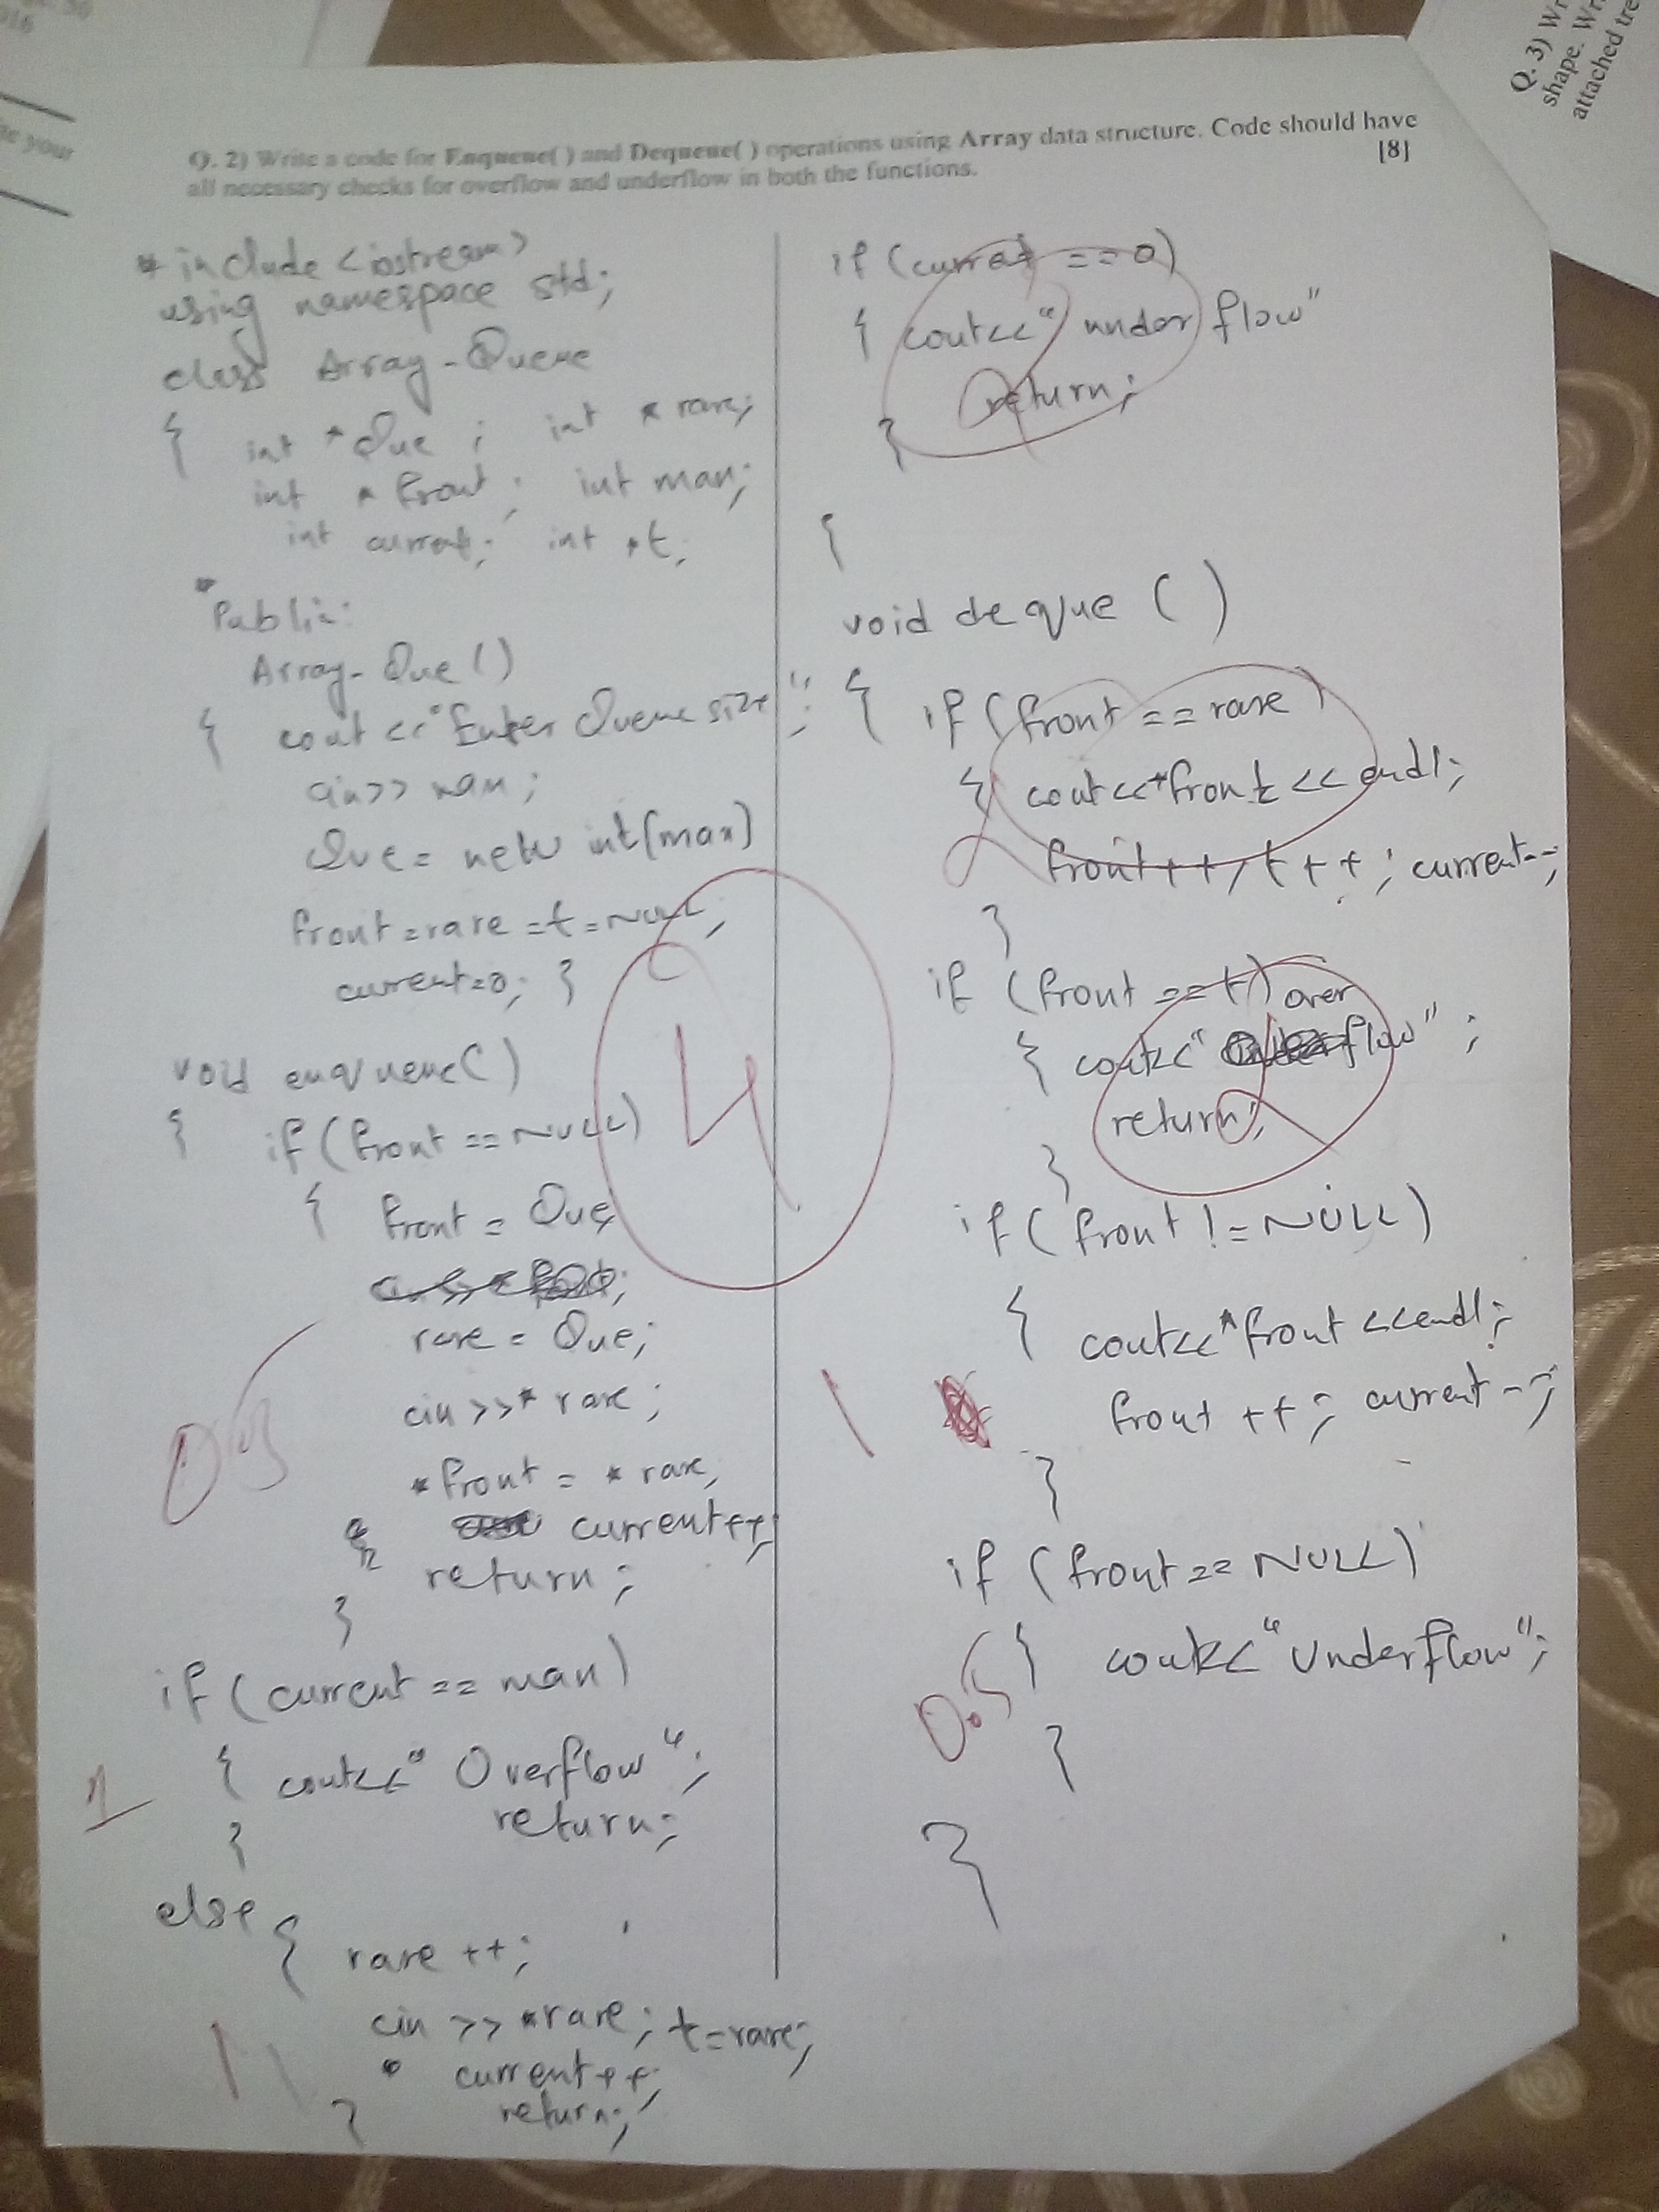 Q. 3) Wr
shape. Wri
attached tre
Q. 2) Write a code for Enqueue( ) and Dequeue( ) operations using Array data structure. Code should have
all necessary checks for overflow and underflow in both the functions. [8]
* include <iostream>
using namespace std;
class Array-Queue
{ int *Que ; int * rare;
int * front; int max;
int current; int *t;
Public:
Array-Que()
{ cout << "Enter Queue size";
cin>> max;
Que = new int[max]
front = rare = t = NULL;
current=0; }
void enqueue()
{ if (front == NULL)
{ front = Que;
rare = Que;
cin >>* rare ;
*front = * rare;
current++;
return;
}
if (current == max)
{ cout<<" Overflow";
return;
}
1
else { rare ++;
cin >> *rare; t=rare;
current++;
return;
}
4
if (current ==0)
{ cout<<" under flow"
return;
}
{
void deque ( )
{ if (front == rare )
{ cout<<*front << endl;
front++; t++; current--;
}
if (front == t) over
{ cout<<" flow" ;
return;
}
if ( front != NULL)
{ cout<<*front <<endl;
1
front ++; current --;
}
if (front == NULL)
{ cout<<"Underflow";
0.5
}
}